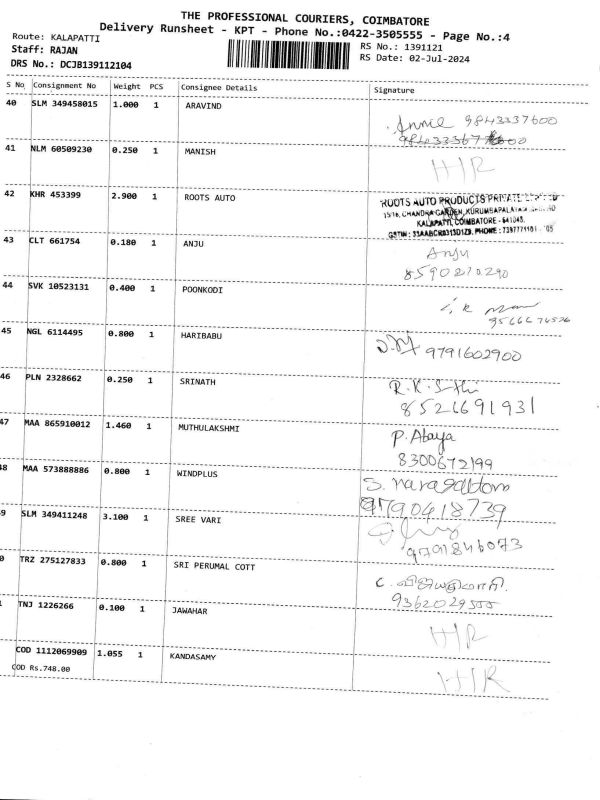 THE PROFESSIONAL COURIERS, COIMBATORE
Delivery Runsheet - KPT - Phone No.:0422-3505555 - Page No.:4
Route: KALAPATTI
RS No.: 1391121
Staff: RAJAN
RS Date: 02-Jul-2024
DRS No.: DCJB139112104
S No Consignment No Weight PCS Consignee Details Signature
40 SLM 349458015 1.000 1 ARAVIND
Annie 9843337600
41 NLM 60509230 0.250 1 MANISH
H/R
42 KHR 453399 2.900 1 ROOTS AUTO
ROOTS AUTO PRODUCTS PRIVATE LIMITED
KALAPATTI, COIMBATORE - 641048.
43 CLT 661754 0.180 1 ANJU
Anju
8590270290
44 SVK 10523131 0.400 1 POONKODI
45 NGL 6114495 0.800 1 HARIBABU
9791602900
46 PLN 2328662 0.250 1 SRINATH
8521691931
47 MAA 865910012 1.460 1 MUTHULAKSHMI
P. Abaya
8300672199
48 MAA 573888886 0.800 1 WINDPLUS
9790418739
9 SLM 349411248 3.100 1 SREE VARI
9791846073
0 TRZ 275127833 0.800 1 SRI PERUMAL COTT
1 TNJ 1226266 0.100 1 JAWAHAR
H/R
COD 1112069909 1.055 1 KANDASAMY
COD Rs.748.00
H/R